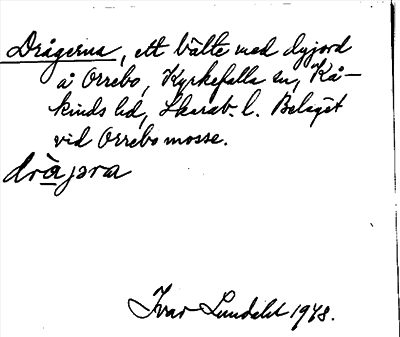 Drågerna, ett bälte med dyjord
å Orrebo, Kyrkefalla sn, Kå-
kinds hd, Skarab. l. Beläget
vid Orrebo mosse.
dràjəra
Ivar Lundahl 1948.